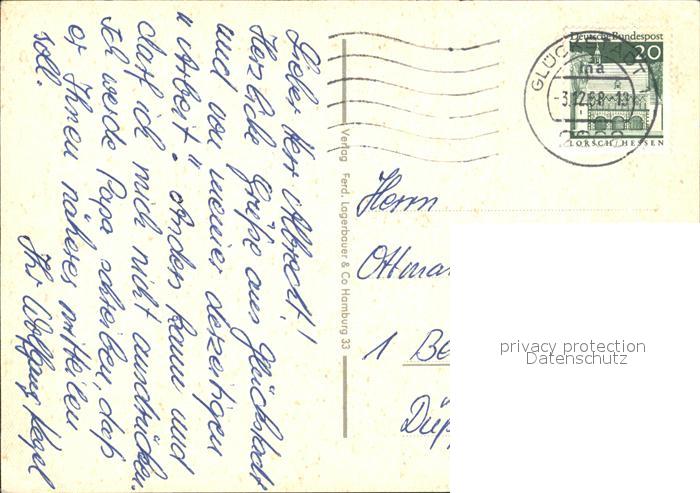 Lieber Herr Albrecht!
Herzliche Grüße aus Glückstadt
und von meiner derzeitigen
"Arbeit". Anders kann und
darf ich mich nicht ausdrücken.
Ich werde Papa schreiben, daß
er Ihnen näheres mitteilen
soll.
Ihr Wolfgang
Verlag Ferd. Lagerbauer & Co Hamburg 33
Deutsche Bundespost
20
LORSCH/HESSEN
GLÜCKSTADT
-3.12.68-13
Herrn
Ottmar
1 Be
Düpp
privacy protection
Datenschutz